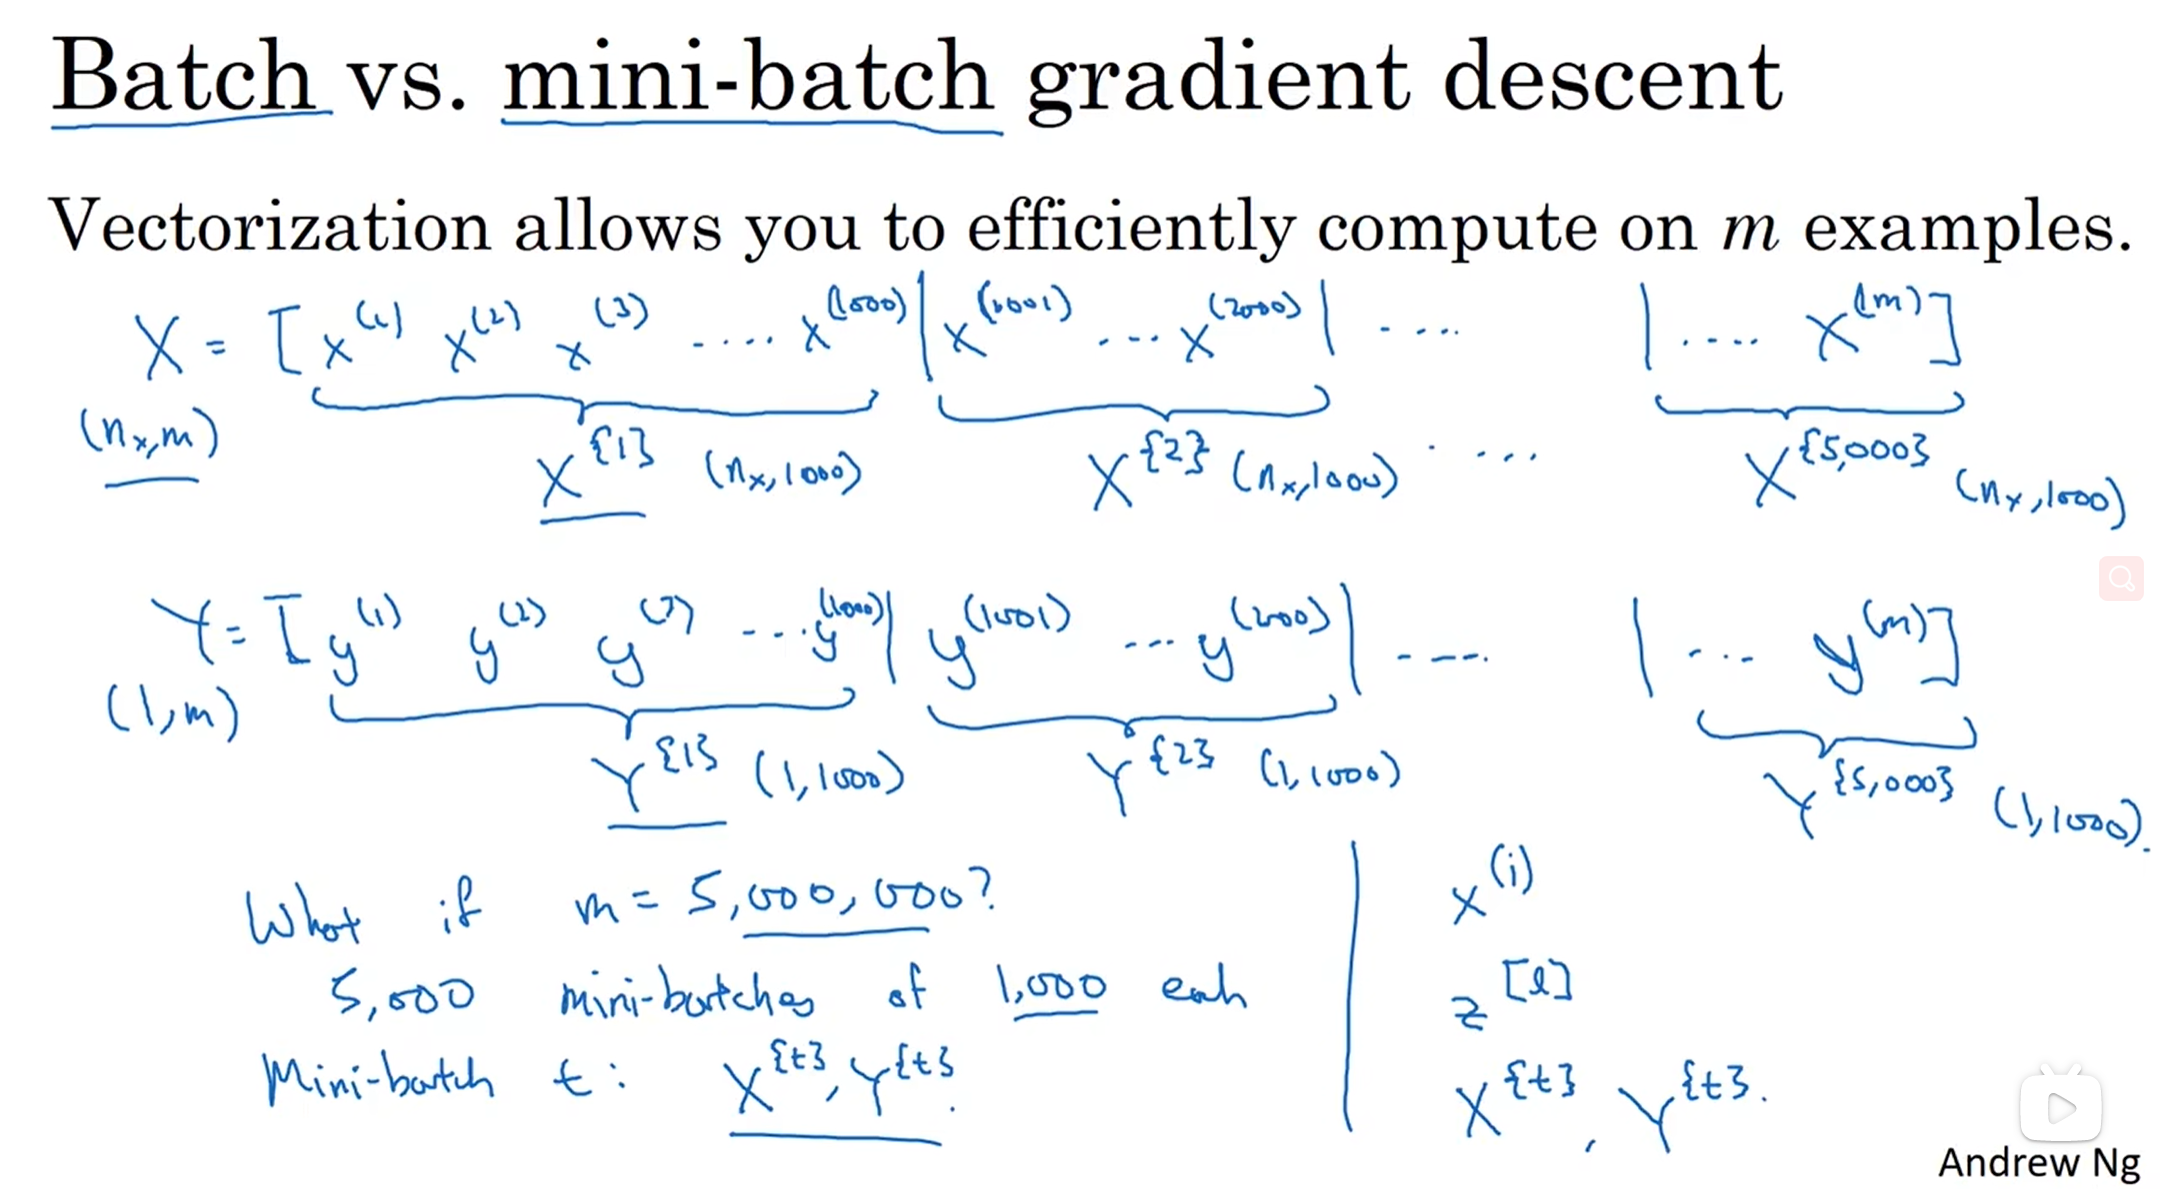 Batch vs. mini-batch gradient descent
Vectorization allows you to efficiently compute on m examples.
X = [x^(1) x^(2) x^(3) ..... x^(1000) | x^(1001) ... x^(2000) | .... | .... x^(m)]
(n_x, m) X^{1} (n_x, 1000) X^{2} (n_x, 1000) .... X^{5,000} (n_x, 1000)
Y = [y^(1) y^(2) y^(3) ... y^(1000) | y^(1001) ... y^(2000) | ---- | ... y^(m)]
(1, m) Y^{1} (1, 1000) Y^{2} (1, 1000) Y^{5,000} (1, 1000).
What if m = 5,000,000?
5,000 mini-batches of 1,000 each
Mini-batch t: X^{t}, Y^{t}.
x^(i)
z^[l]
X^{t}, Y^{t}.
Andrew Ng